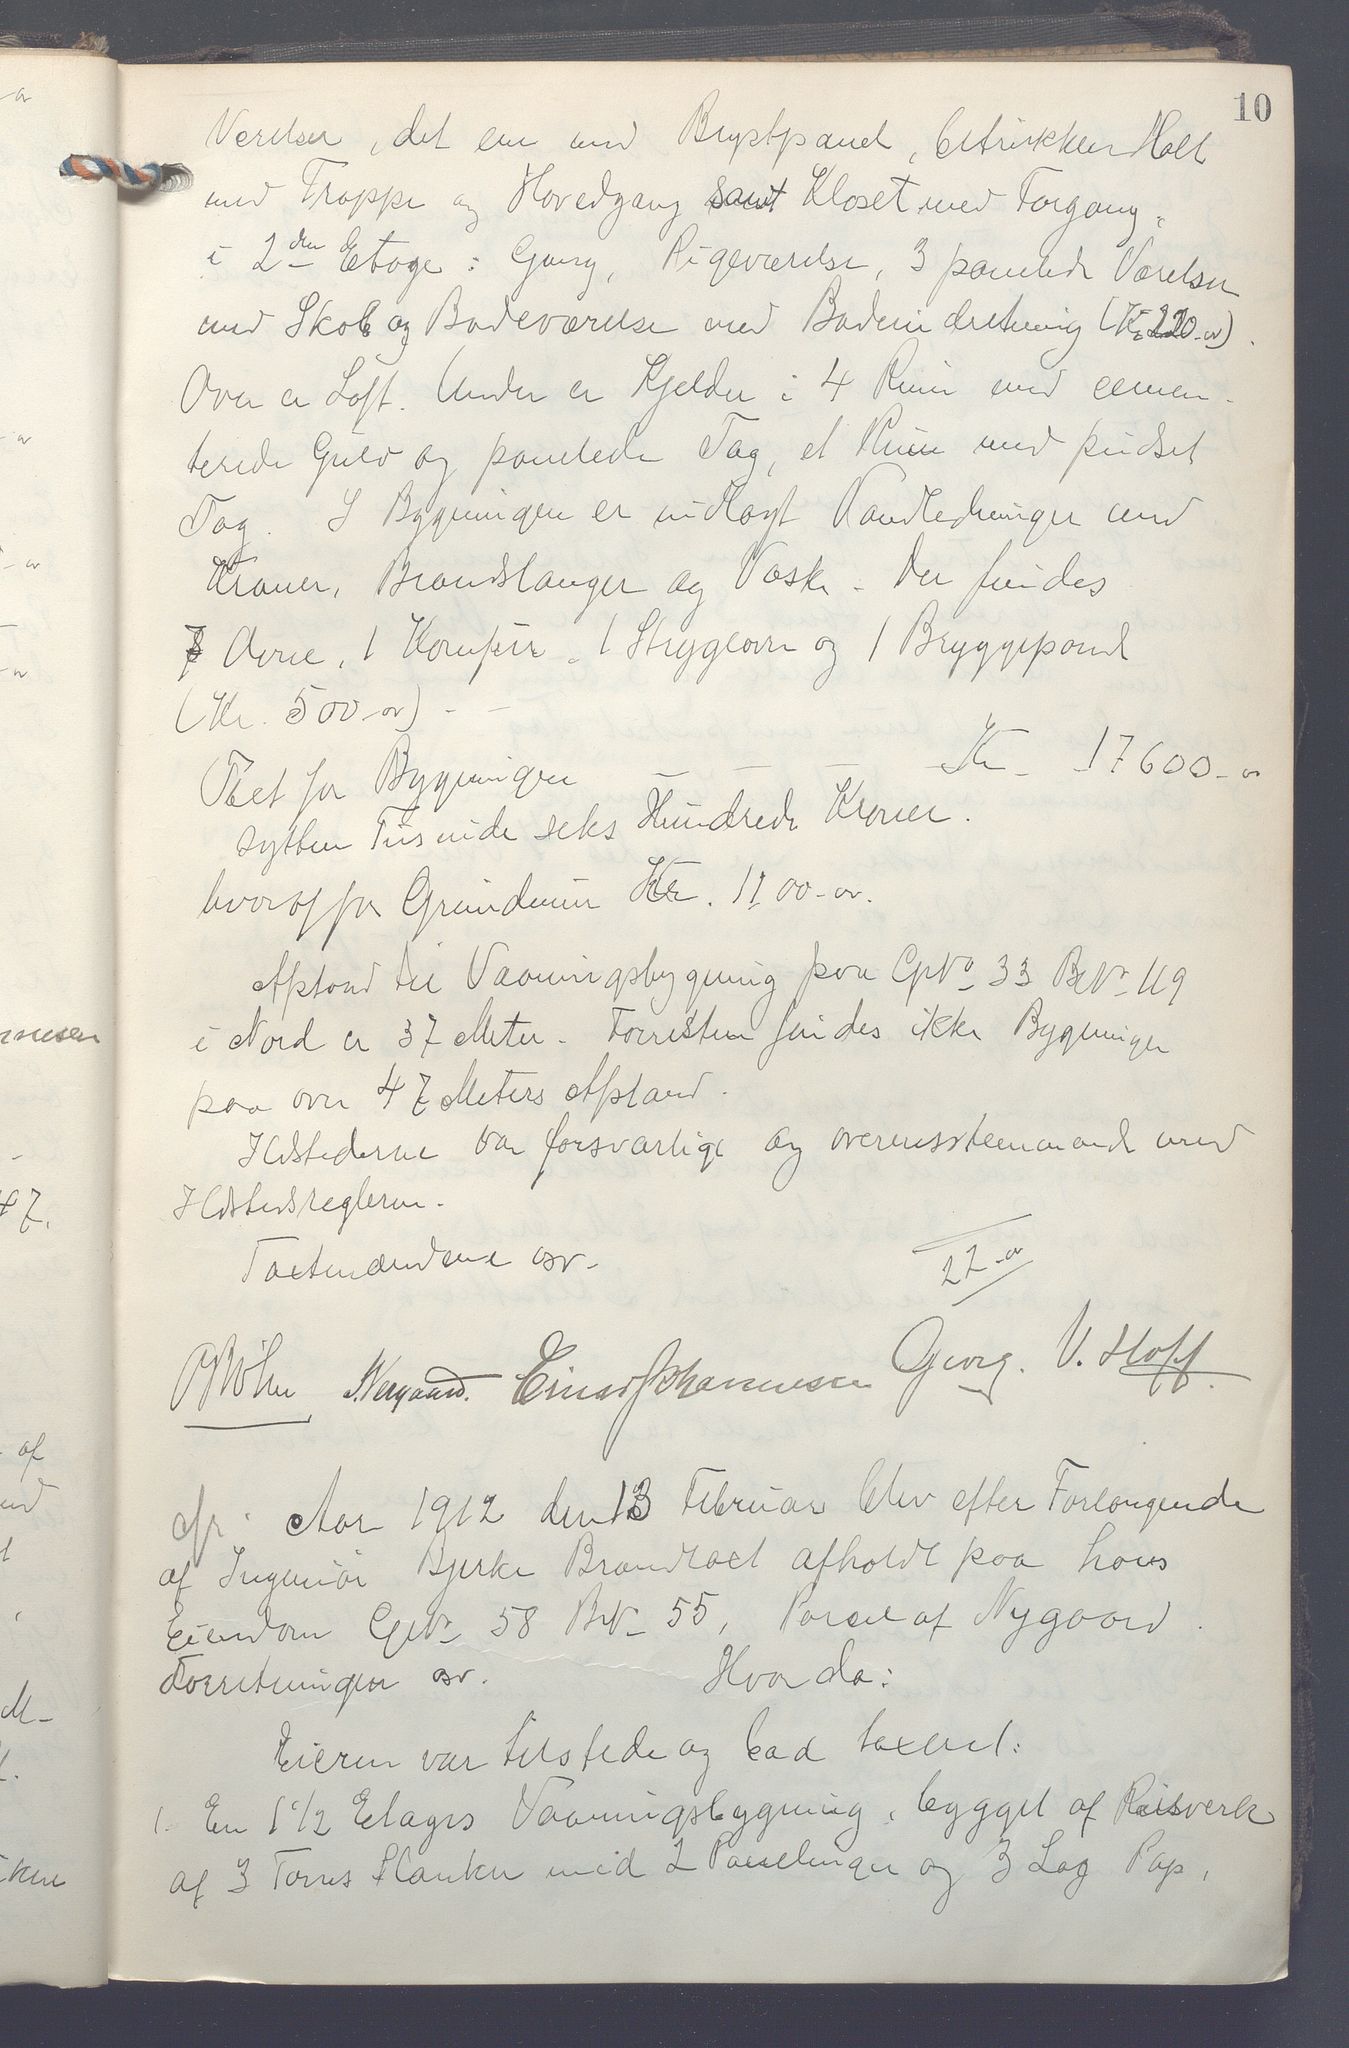 10
Værelser, det ene med Brystpanel, betrukken Hall
med Trappe og Hovedgang samt Kloset med Forgang,
i 2den Etage: Gang, Pigeværelse, 3 panelede Værelser
med Skab og Badeværelse med Badeindretning (Kr 220.-)
Over er Loft. Under er Kjelder i 4 Rum med cemen-
terede Gulv og panelede Tag, et Rum med pudset
Tag. I Bygningen er indlagt Vandledninger med
Kraner, Brandslanger og Vaske. Der findes
Ovne, 1 Komfur, 1 Strygeovn og 1 Bryggepande
(Kr. 500.-)
Taxt for Bygningen - - - Kr. 17600.-
sytten Tusinde seks Hundrede Kroner.
hvoraf for Grundmur Kr. 1100.-
Afstand til Vaaningsbygning paa GNo 33 BrNo 119
i Nord er 37 Meter. Forresten findes ikke Bygninger
paa over 47 Meters Afstand.
Ildstederne var forsvarlige og overensstemmende med
Ildstedsreglerne.
Taxtmændene osv.
22.-
Nergaard. Einar Johannessen Georg. V. Hoff.
Aar 1912 den 13 Februar blev efter Forlangende
af Ingeniør Bjerke Brandtaxt afholdt paa hans
Eiendom GNo 58 BrNo 55, Parcel af Nygaard.
Forretningen osv. Hvorda:
Eieren var tilstede og bad taxeret:
1. En 1 1/2 Etages Vaaningsbygning, bygget af Reisverk
af 3 Toms Planker med 2 Panelinger og 3 Lag Pap,